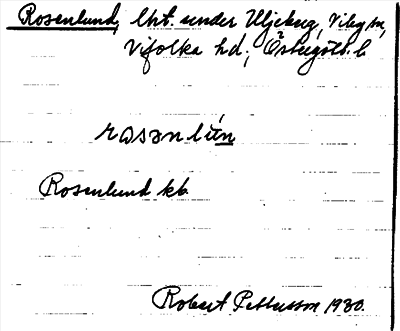 Rosenlund, lht. under Uljeberg, Viby sn,
Vifolka hd; Östergötl. l
rosənlún
Rosenlund kb
Robert Pettersson 1930.